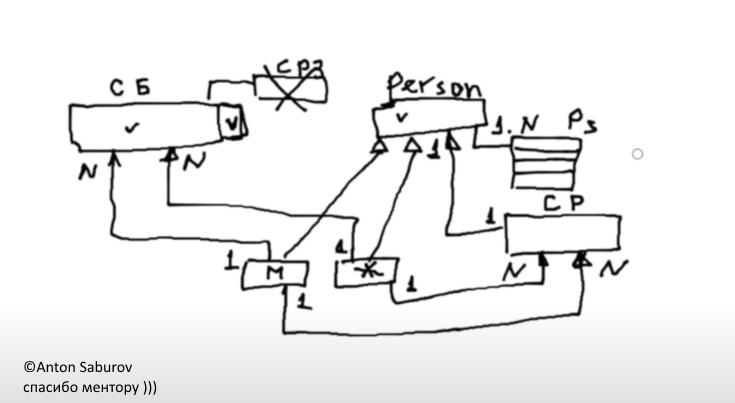 СБ
СРЗ
Person
v
v
v
1. N
Ps
N
N
1
1
СР
1
1
М
Ж
1
1
N
N
©Anton Saburov
спасибо ментору )))